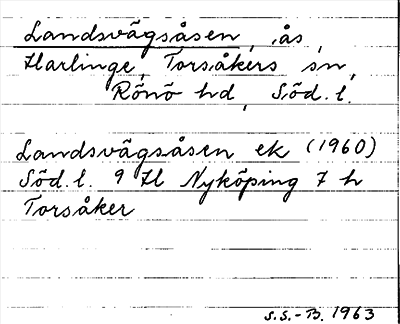 Landsvägsåsen, ås,
Harlinge, Torsåkers sn,
Rönö hd, Söd. l.
Landsvägsåsen ek (1960)
Söd. l. 9 H Nyköping 7 h
Torsåker
S.S.-B. 1963